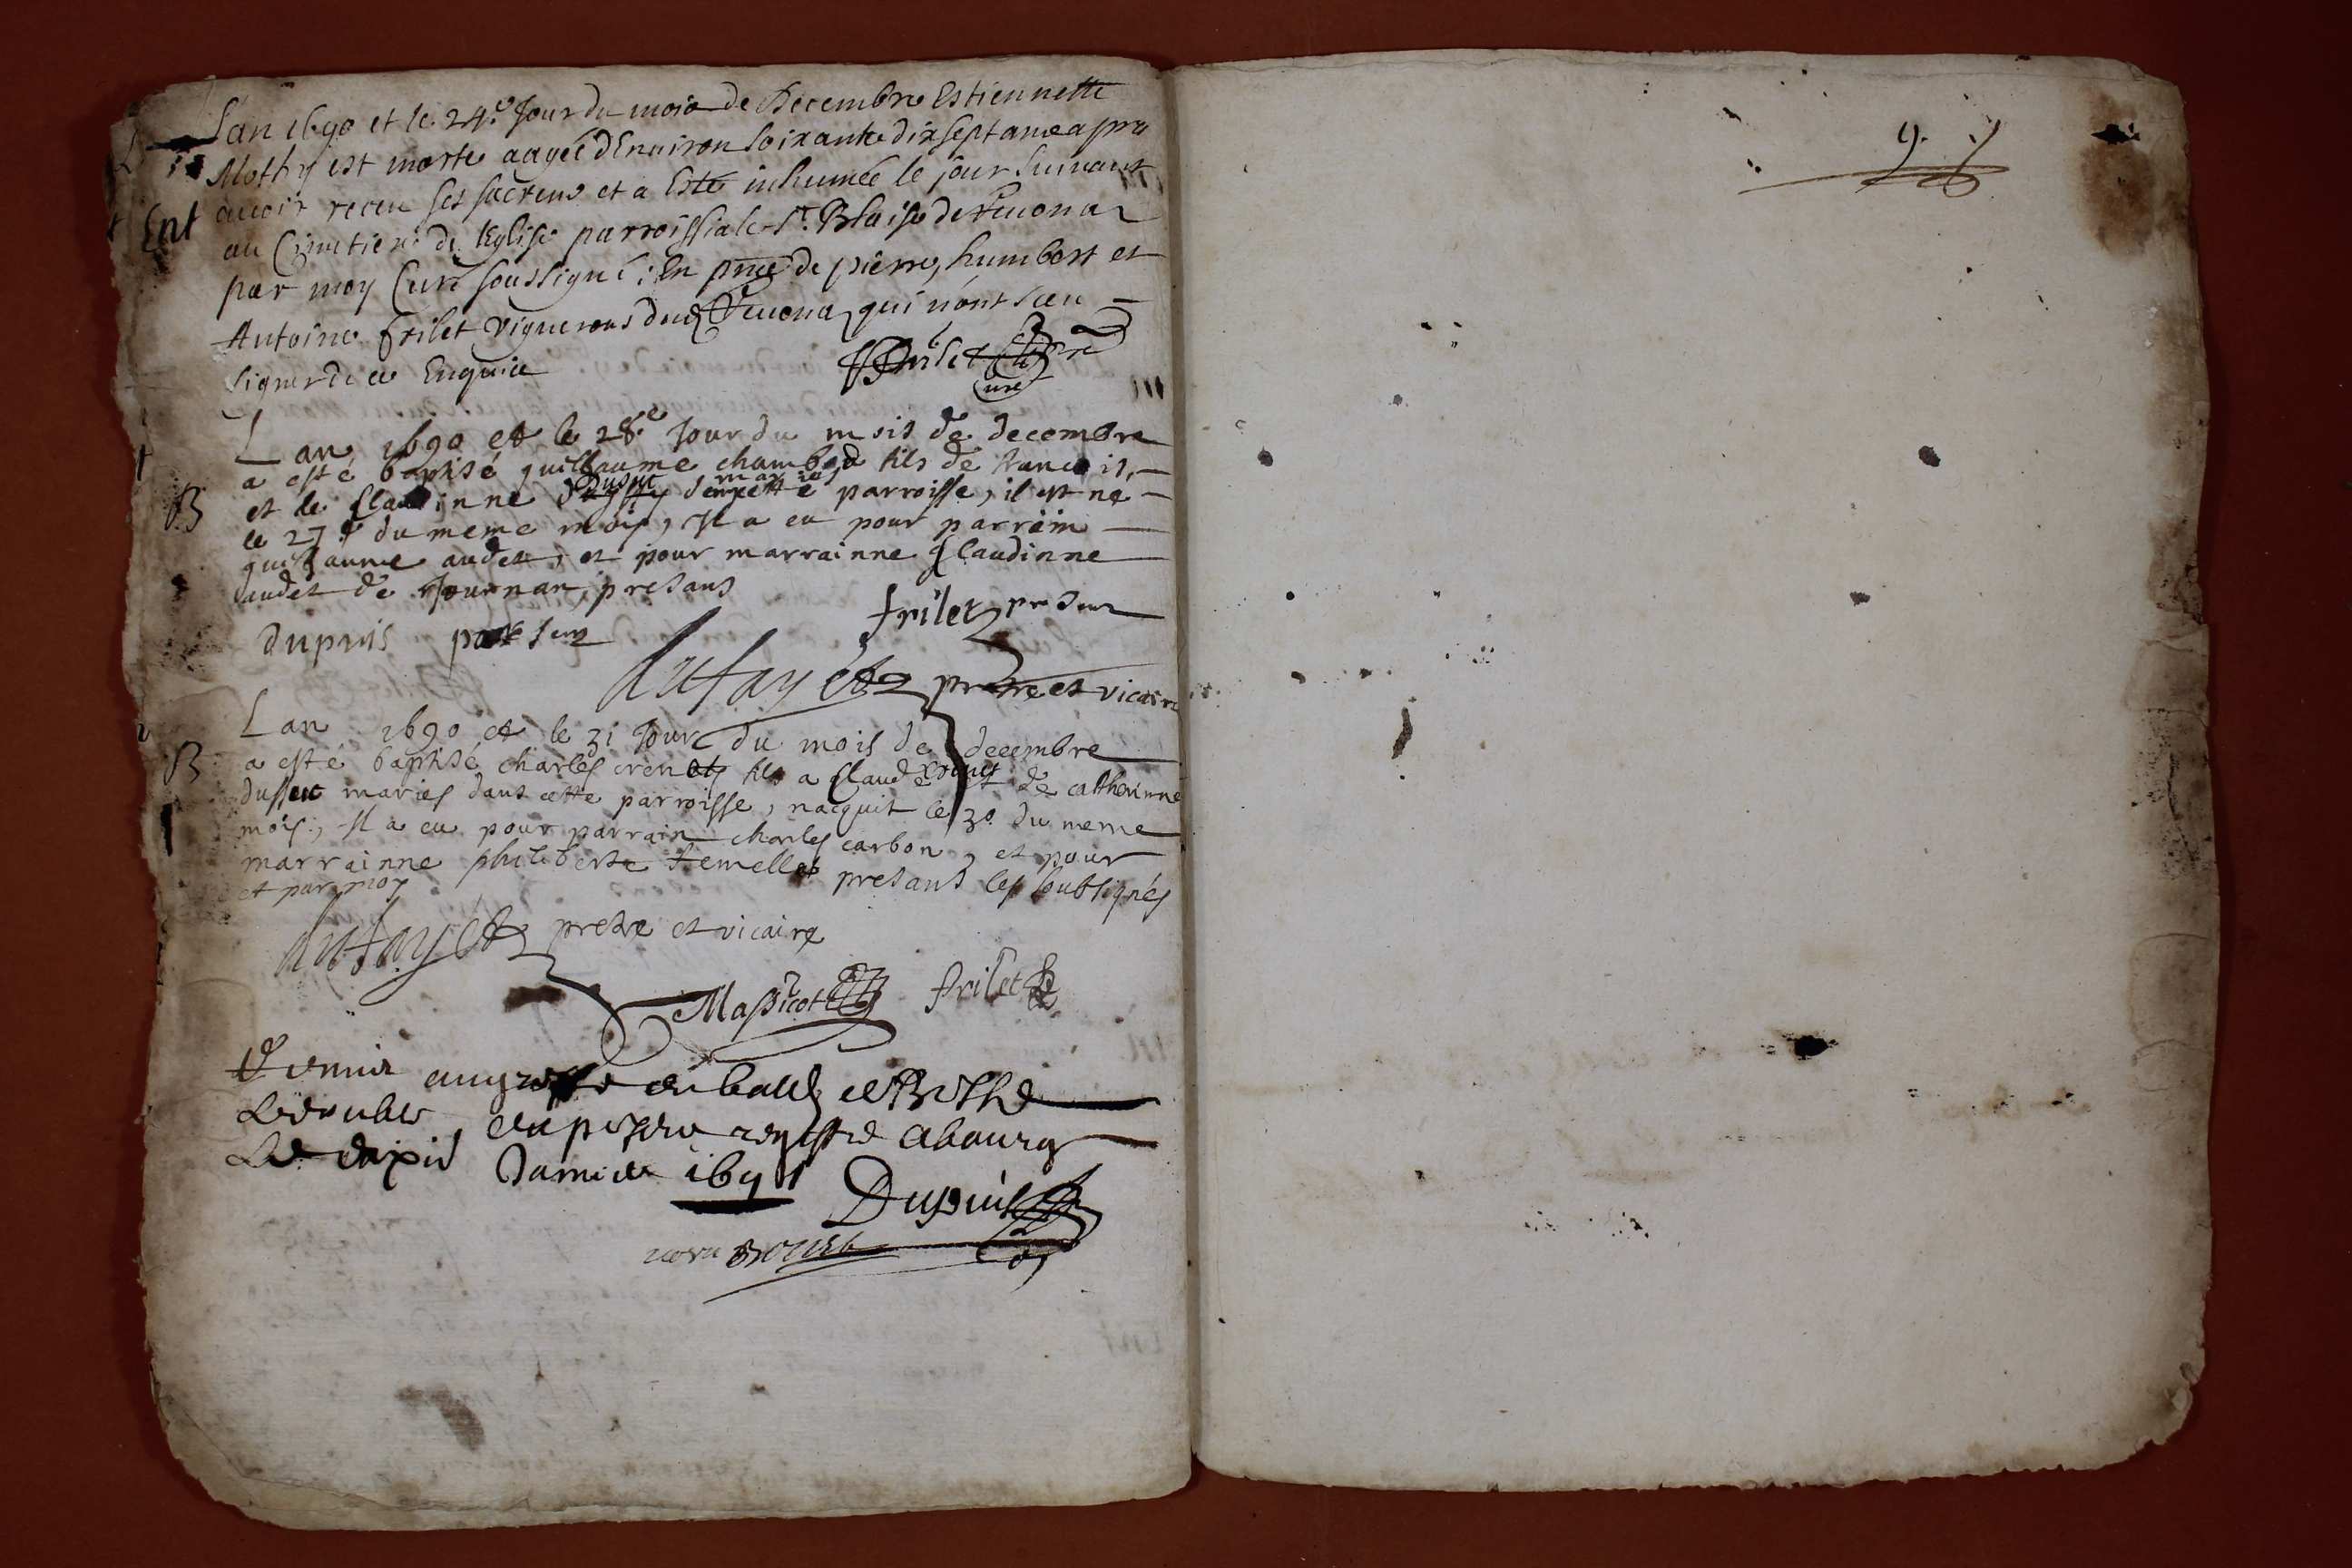 L'an 1690 et le 24.e Jour du mois de Decembre Estiennette
Mothy est morte aagée d'Enuiron soixante dix sept ans apres
auoir receu ses sacrens et a Esté inhumée le jour suiuant
Ent
au Cimetiere de l'Eglise parroissiale St. Blaise de
par moy Curé soussigné; En pnce de pierre, humbert et
Antoine frilet vignerons dud qui n'ont sceu
signer de ce Enquis
frilet
Curé
Lan 1690 et le 28.e Jour du mois de decembre
a esté baptisé guillaume chambard fils de francois,
B
et de Claudinne Dusut mariés dans cette parroisse, il est né
le 27.e du meme mois, Il a eu pour parrain
guillaume audet, et pour marrainne Claudinne
audet de Journan, presans
frilet presen
dupuis presen
dufayet pretre et vicaire
Lan 1690 et le 31 Jour du mois de decembre
B
a esté baptisé charles fils a Claude et de catherinne
mariés dans cette parroisse, nacquit le 30 du meme
mois, Il a eu pour parrain charles carbon, et pour
marrainne philiberte presans les soubsignés
et par moy
dufayet pretre et vicaire
Massicot frilet
au greffe du
Le double du registre a bourg
Le Janvier 1691
Dupuis
9.